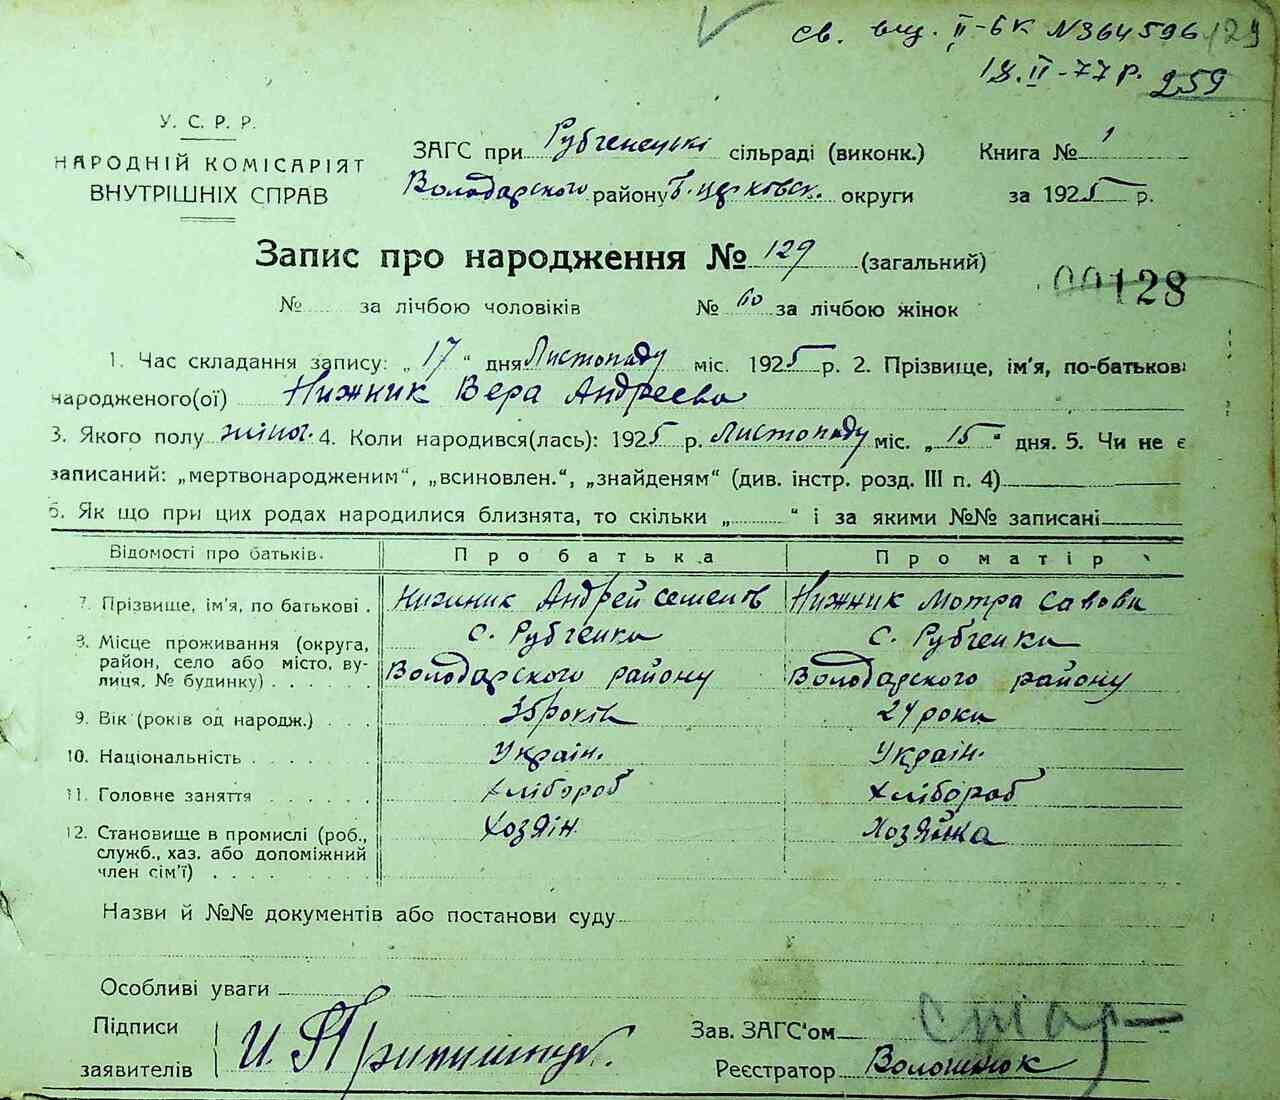 св. вид. ІІ-БК №364596 129
18.ІІ-77 р. 259
У. С. Р. Р.
НАРОДНІЙ КОМІСАРІЯТ
ВНУТРІШНІХ СПРАВ
ЗАГС при Рубченецькі сільраді (виконк.) Книга № 1
Володарского району Б. церковск. округи за 1925 р.
Запис про народження № 129 (загальний)
00128
№ за лічбою чоловіків № 60 за лічбою жінок
1. Час складання запису: „ 17 “ дня Листопаду міс. 1925 р. 2. Прізвище, ім'я, по-батькові
народженого(ої) Нижник Вера Андреева
3. Якого полу жіноч. 4. Коли народився(лась): 1925 р. Листопаду міс. „ 15 “ дня. 5. Чи не є
записаний: „мертвонародженим“, „всиновлен.“, „знайденям“ (див. інстр. розд. III п. 4)
6. Як що при цих родах народилися близнята, то скільки „ “ і за якими №№ записані
Відомості про батьків. Про батька Про матір
7. Прізвище, ім'я, по батькові . Нижник Андрей Семенов Нижник Мотра Савова
8. Місце проживання (округа, район, село або місто, вулиця, № будинку) . . . . с. Рубченки Володарского району с. Рубченки Володарского району
9. Вік (років од народж.) . . . 35 років 24 роки
10. Національність . . . . . Україн. Україн.
11. Головне заняття . . . . . Хлібороб Хлібороб
12. Становище в промислі (роб., служб., хаз. або допоміжний член сім'ї) . . . . Хозяін Хозяйка
Назви й №№ документів або постанови суду
Особливі уваги
Підписи
заявителів И.
Зав. ЗАГС'ом
Реєстратор Волошинюк